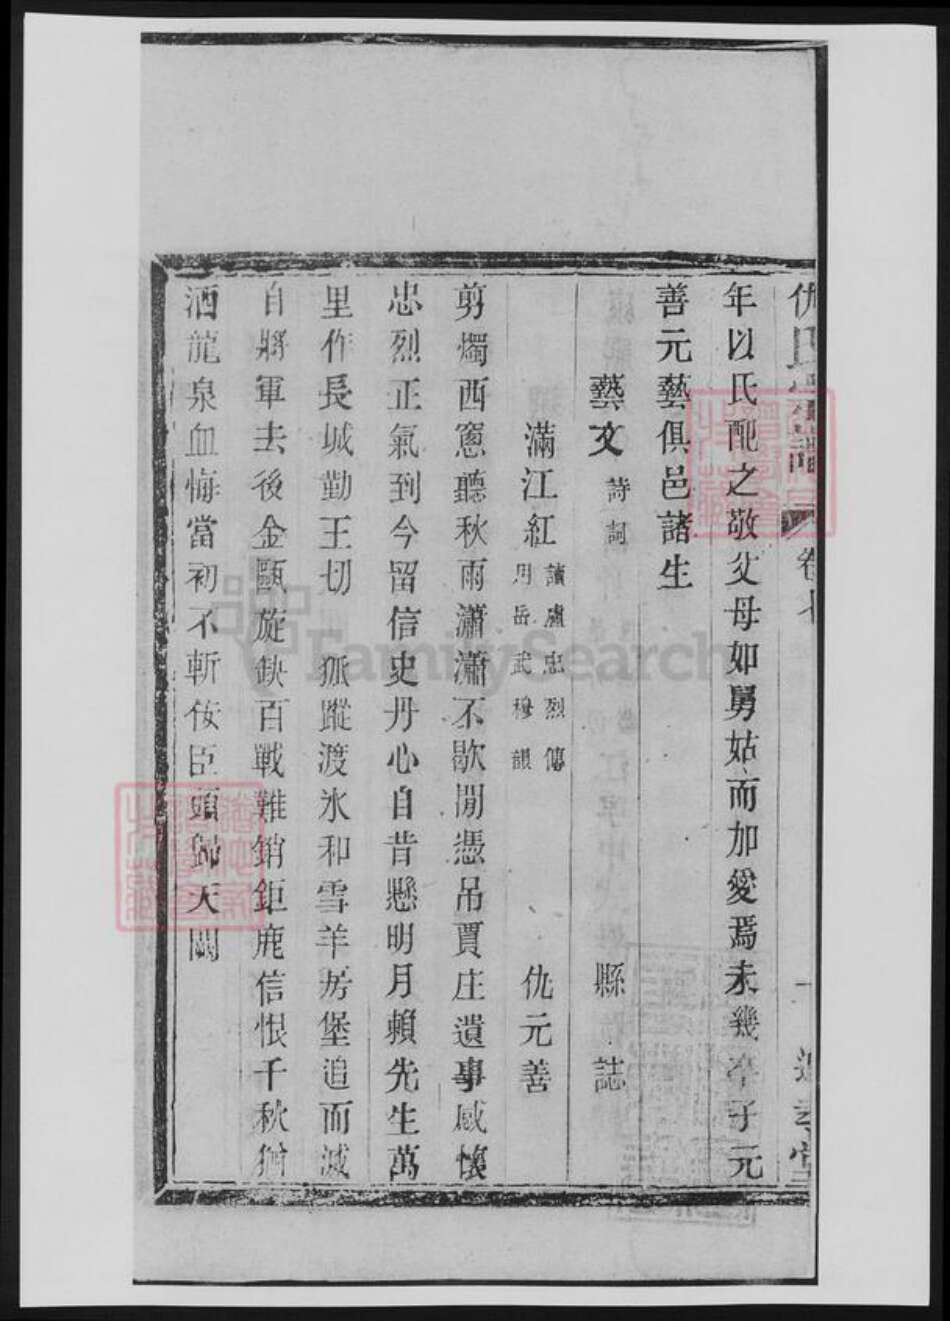 仇氏
卷七
一
堂
年以氏配之敬父母如舅姑而加愛焉未幾卒子元
善元藝俱邑諸生
藝文 詩詞 縣誌
滿江紅 讀盧忠烈傳用岳武穆韻 仇元善
剪燭西窻聽秋雨瀟瀟不歇閒憑吊賈庄遺事感懷
忠烈正氣到今留信史丹心自昔懸明月賴先生萬
里作長城勤王切 狐蹤渡氷和雪羊房堡追而滅
自將軍去後金甌旋缺百戰難銷鉅鹿信恨千秋猶
洒龍泉血悔當初不斬佞臣頭歸天闕
FamilySearch